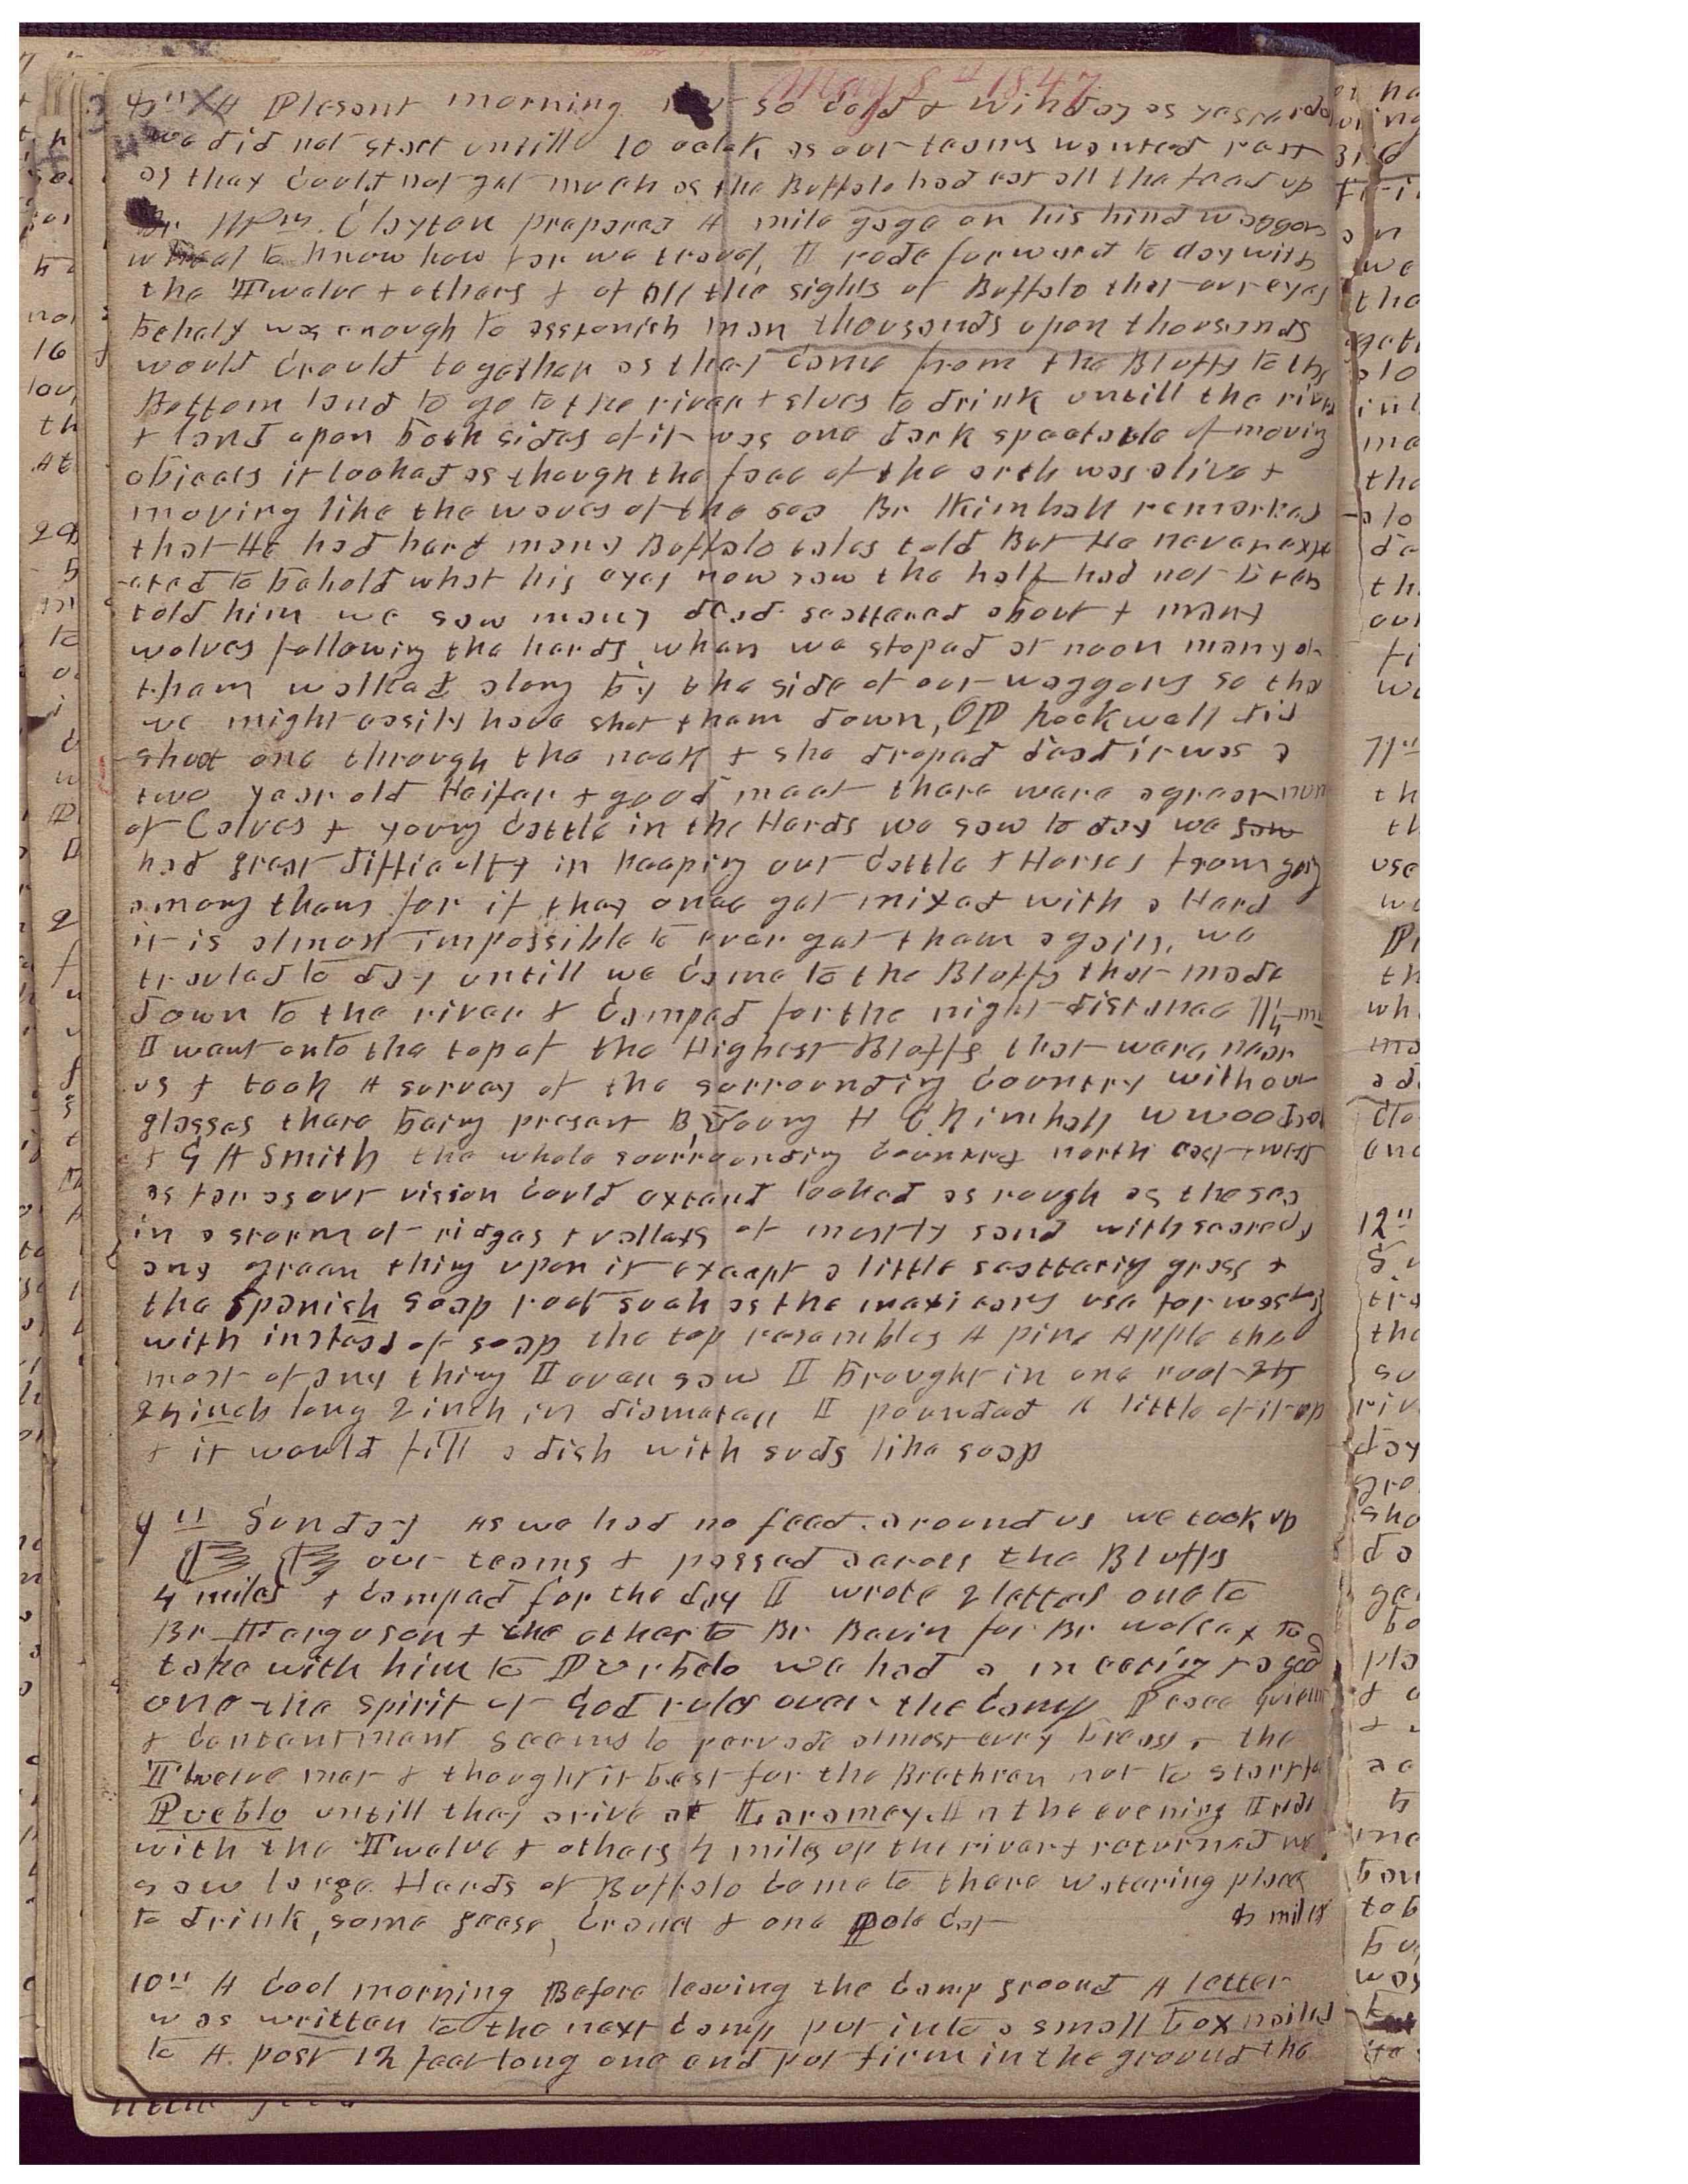 May 8th 1847
8th A Plesant morning not so cold & windy as yesterday
we did not start untill 10 oclok as our teams wanted rest
as they could not get much as the Buffalo had eat all the feed up
Br Wm. Clayton prepared A mile gage on his hind waggon
wheel to know how far we travel, I rode forward to day with
the Twelve & others & of all the sights of Buffalo that our eyes
behely was enough to asstonish man thousands upon thousands
would croud together as they came from the Bluffs to the
Bottom land to go to the river & slues to drink untill the river
& land upon both sides of it was one dark spectacle of moving
objects it looked as though the face of the erth was alive &
moving like the waves of the sea Br Kimball remarked
that He had hard many Buffalo tales told But He never exp
ected to behold what his eyes now saw the half had not been
told him we saw many dead scattered about & many
wolves following the herds, when we stoped at noon many of
them walked along by the side of our waggons so tha
we might easily have shot them down, OP Rockwell did
shoot one through the neck & she droped dead it was a
two year old Heifer & good meat there were a great num
of Calves & young cattle in the Herds we saw to day we saw
had great difficulty in keeping our cattle & Horses from going
among them for if they once get mixed with a Herd
it is almost impossible to ever get them again, we
traveled to day untill we came to the Bluffs that made
down to the river & camped for the night distance 11¼ m
I went onto the top of the Highest Bluffs that were near
us & took A survey of the surrounding country with our
glasses there being present B Young H C Kimball W Woodruff
& G A Smith the whole sourrounding country north east & west
as far as our vision could extend looked as rough as the sea
in a storm of ridges & valleys of mostly sand with scarcely
any green thing upon it except a little scattering grass &
the Spanish soap root such as the mexicans use for washing
with instead of soap the top resembles A pine Apple the
most of any thing I ever saw I brought in one root 24
24 inch long 2 inch in diameter I pounded A little of it up
& it would fill a dish with suds like soap
9th Sunday As we had no feed around us we took up
our teams & passed across the Bluffs
4 miles & camped for the day I wrote 2 letters one to
Br Ferguson & the other to Br for Br to
take with him to we had a meeting & a good
one the spirit of God rules over the camp Peace quiett
& contentment seems to pervade almost every breast, the
Twelve met & thought it best for the Brethren not to start for
Pueblo untill they arive at Laramey. In the evening I rode
with the Twelve & others 4 miles up the river & returned we
saw large Herds of Buffalo come to there watering place
to drink, some geese, Crane & one Pole Cat
miles
10th A Cool morning Before leaving the camp ground A letter
was written to the next camp put into a small box nailed
to A post 12 feet long one end put firm in the ground the